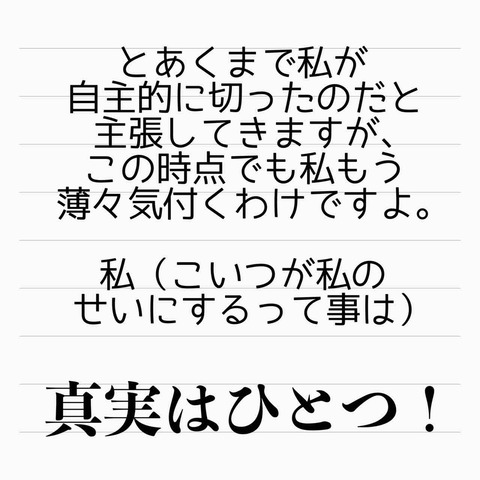 とあくまで私が
自主的に切ったのだと
主張してきますが、
この時点でも私もう
薄々気付くわけですよ。
私（こいつが私の
せいにするって事は）
真実はひとつ！